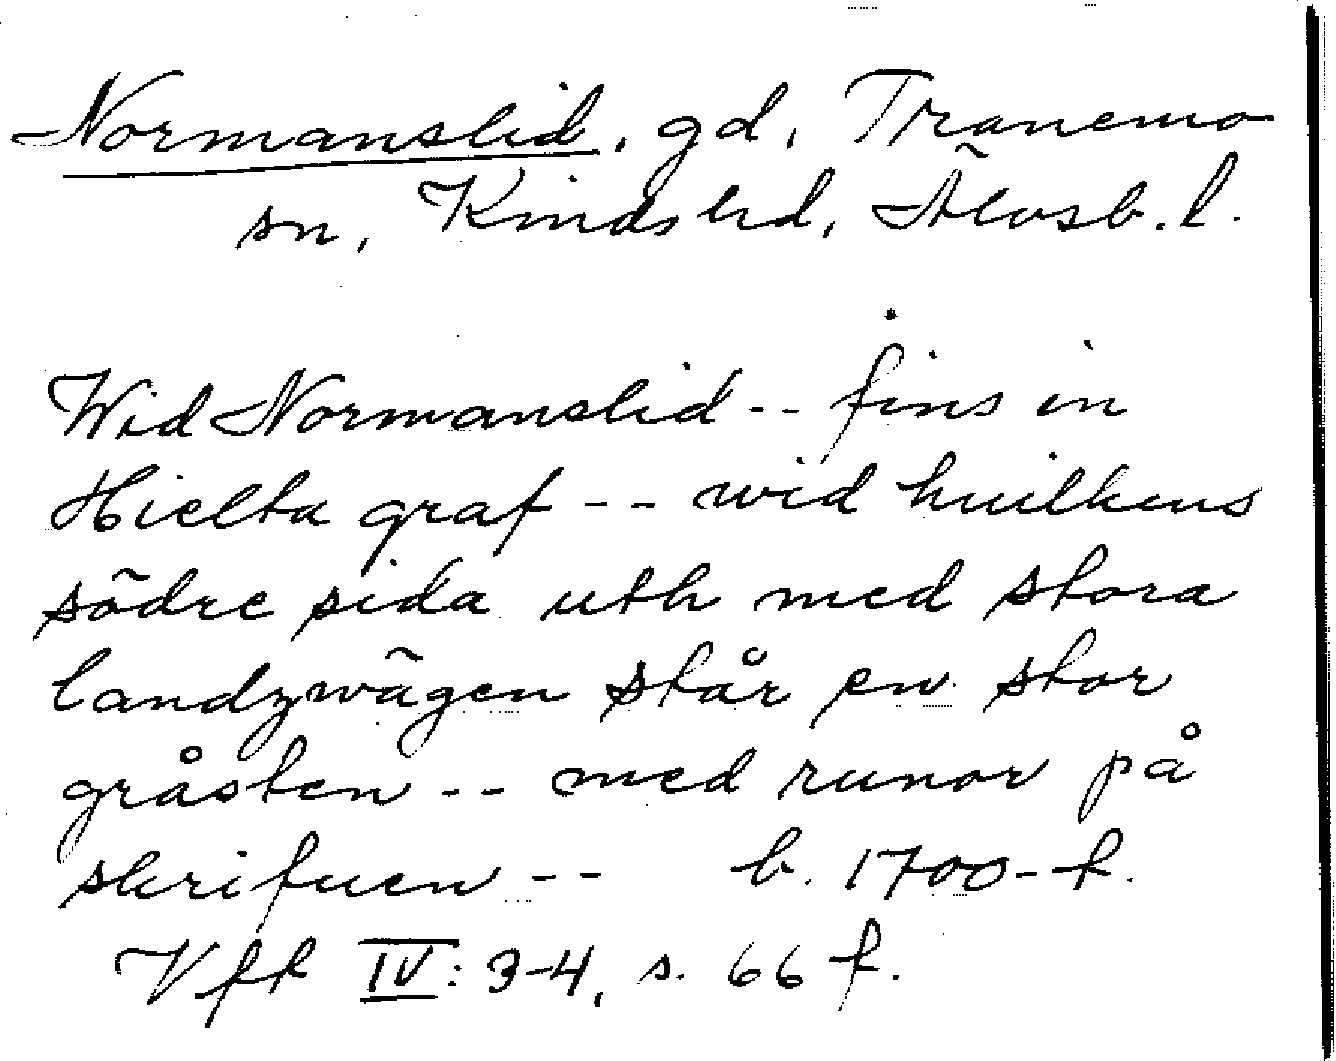 Normanslid, gd, Tranemo
sn, Kinds hd, Älvsb. l.
Wid Normanslid -- fins in
Hielta graf -- wid huilkens
södre sida uth med stora
landzwägen står en stor
gråsten -- med runor på
skrifuen -- b. 1700-t.
Vft IV: 3-4, s. 66 f.